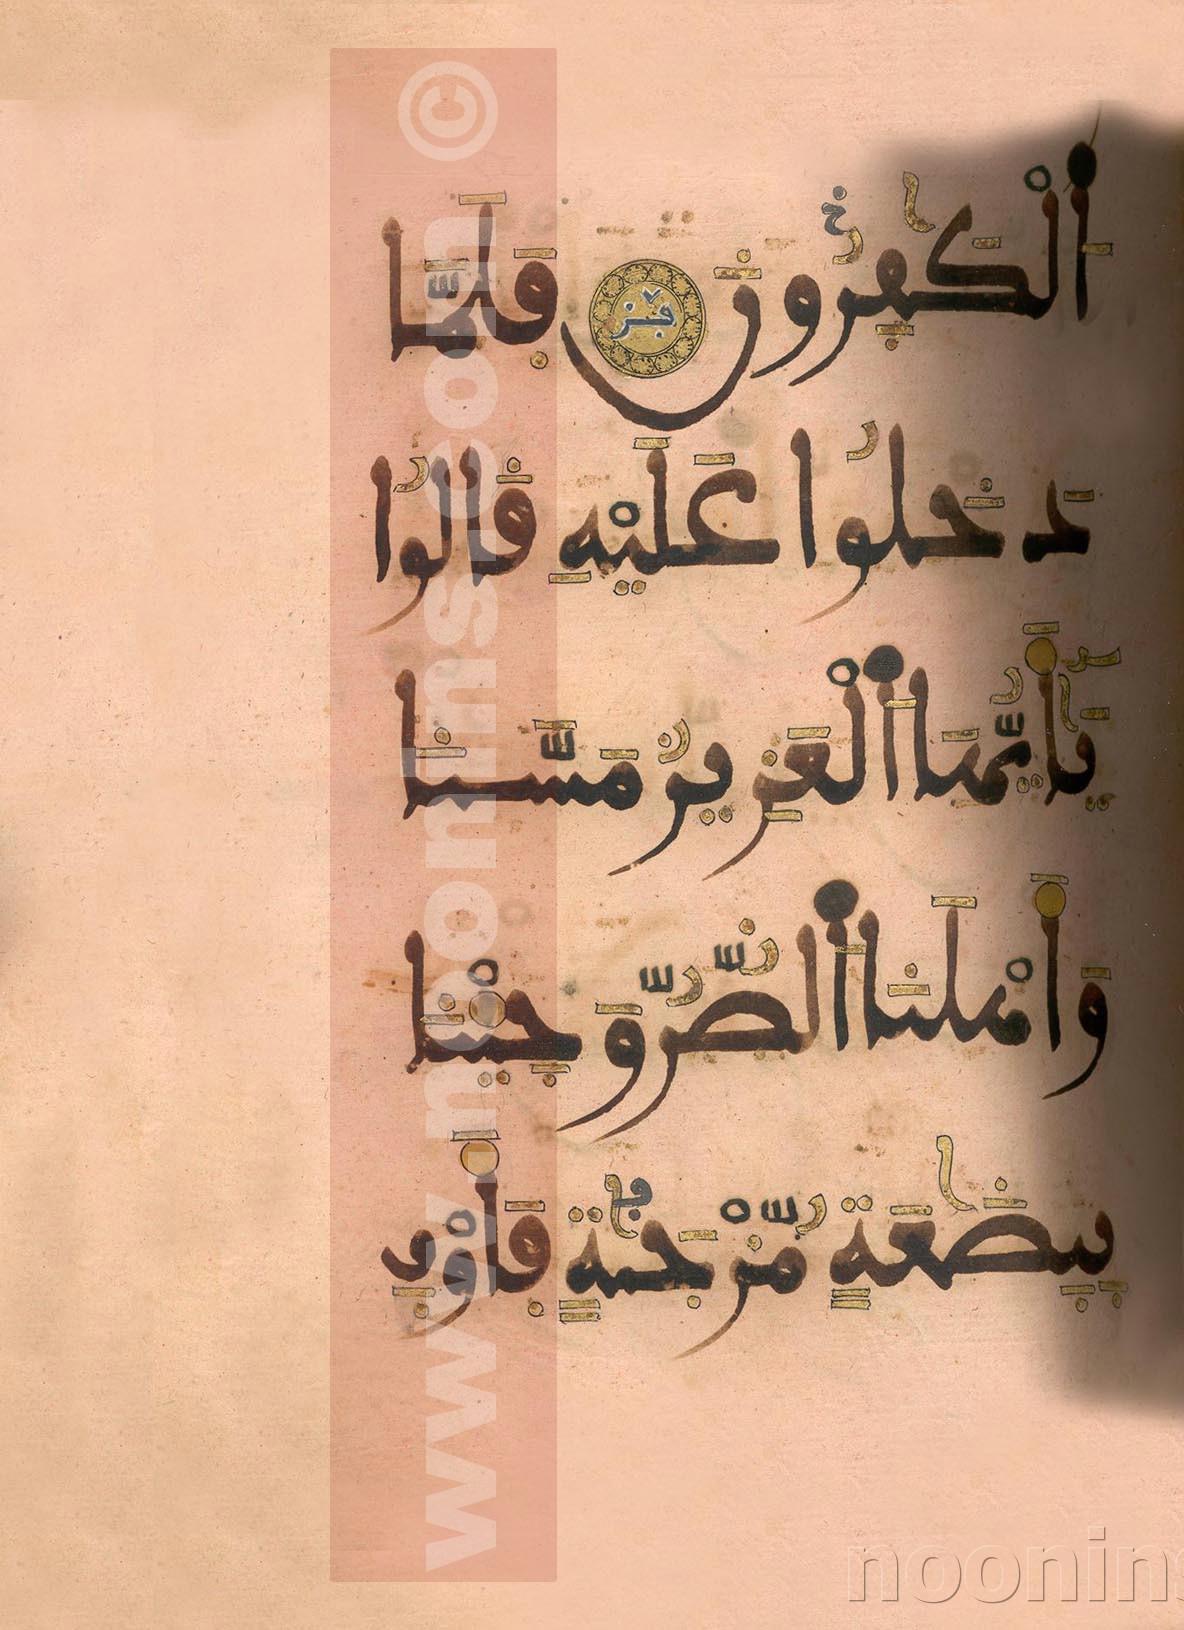 اَ۬لْكَٰفِرُونَۖ فَلَمَّا
دَخَلُوا عَلَيْهِ قَالُوا
يَٰٓأَيُّهَا اَ۬لْعَزِيزُ مَسَّنَا
وَأَهْلَنَا اَ۬لضُّرُّ وَجِئْنَا
بِبِضَٰعَةٍ مُّزْجَىٰةٍ فَأَوْفِ
www.nsonins.com ©
noonins